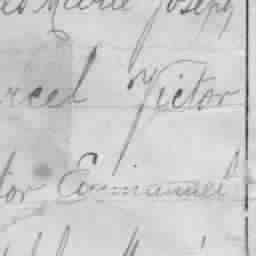 Marie Joseph
rcel Victor
tor Emmanuel